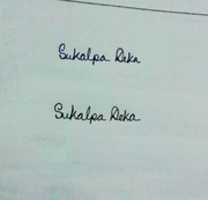 Sukalpa Deka
Sukalpa Deka